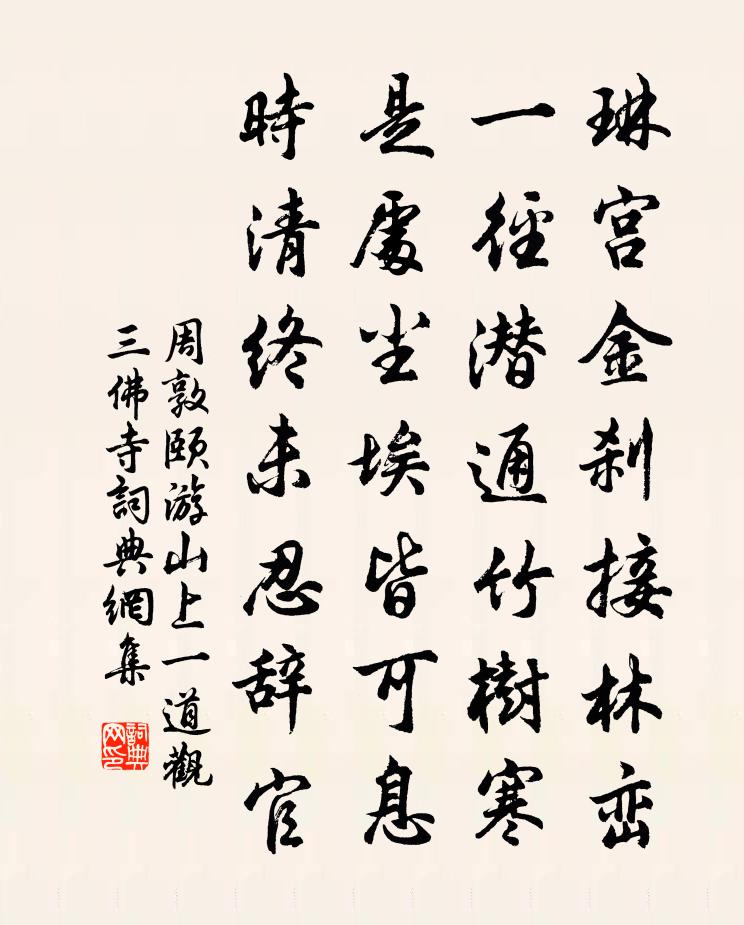 琳宫金刹接林峦
一徑潜通竹樹寒
是處尘埃皆可息
時清終未忍辞官
周敦颐游山上一道觀
三佛寺詞典網集
詞典网印